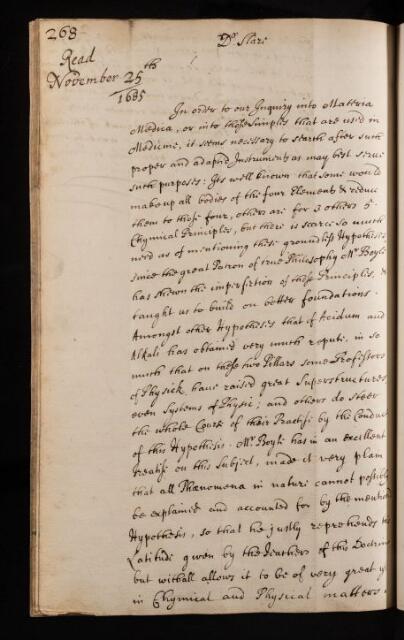 268
Dr. Slare
Read
November 25th
1685
In order to our Inquiry into Materia
Medica, or into those Simples that are used in
Medicine, it seems necessary to search after such
proper and adapted Instruments as may best serve
such purposes: Its well known that some would
make up all bodies of the four Elements & reduce
them to those four, others are for 3 others 5
Chymical Principles, but there is scarce so much
need as of mentioning these groundless Hypothesis
since the great Patron of true Philosophy Mr. Boyle
has shewn the imperfection of those Principles, &
taught us to build on better foundations.
Amongst other Hypotheses that of Acidum and
Alkali has obtained very much repute, in so
much that on these two Pillars some Professors
of Physick have raised great Superstructures
even Systems of Physic; and others do steer
the whole Course of their Practise by the Conduct
of this Hypothesis. Mr. Boyle has in an excellent
treatise on this Subject, made it very plain
that all Phænomena in nature cannot possibly
be explained and accounted for by the mentioned
Hypothesis, so that he justly reprehends the
Latitude given by the Teachers of this Doctrine
but withall allows it to be of very great
in Chymical and Physical matters